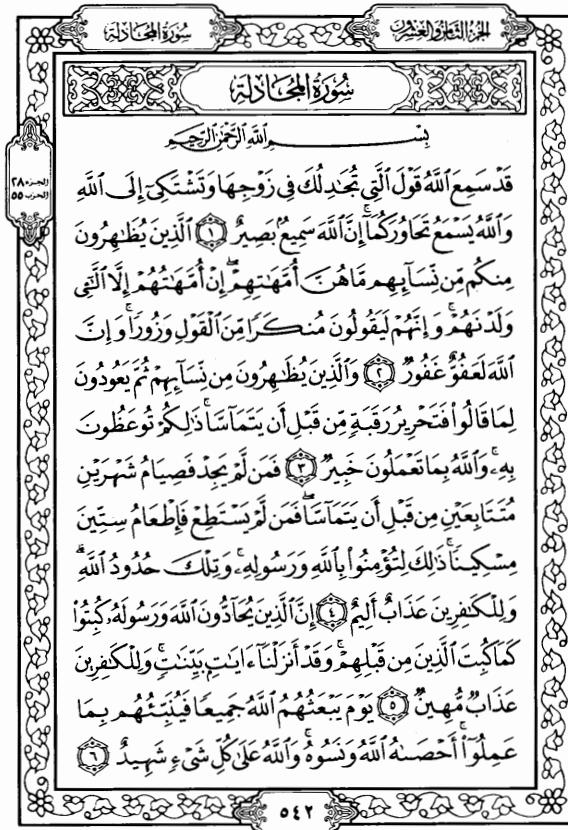 الجزء الثامن والعشرون
سورة المجادلة
سُورَةُ المُجَادلَة
بِسْمِ ٱللَّهِ ٱلرَّحْمَٰنِ ٱلرَّحِيمِ
الجزء ٢٨
الحزب ٥٥
قَدْ سَمِعَ ٱللَّهُ قَوْلَ ٱلَّتِى تُجَٰدِلُكَ فِى زَوْجِهَا وَتَشْتَكِىٓ إِلَى ٱللَّهِ
وَٱللَّهُ يَسْمَعُ تَحَاوُرَكُمَآ ۚ إِنَّ ٱللَّهَ سَمِيعٌۢ بَصِيرٌ ١ ٱلَّذِينَ يُظَٰهِرُونَ
مِنكُم مِّن نِّسَآئِهِم مَّا هُنَّ أُمَّهَٰتِهِمْ ۖ إِنْ أُمَّهَٰتُهُمْ إِلَّا ٱلَّٰٓـِٔى
وَلَدْنَهُمْ ۚ وَإِنَّهُمْ لَيَقُولُونَ مُنكَرًا مِّنَ ٱلْقَوْلِ وَزُورًا ۚ وَإِنَّ
ٱللَّهَ لَعَفُوٌّ غَفُورٌ ٢ وَٱلَّذِينَ يُظَٰهِرُونَ مِن نِّسَآئِهِمْ ثُمَّ يَعُودُونَ
لِمَا قَالُوا۟ فَتَحْرِيرُ رَقَبَةٍ مِّن قَبْلِ أَن يَتَمَآسَّا ۚ ذَٰلِكُمْ تُوعَظُونَ
بِهِۦ ۚ وَٱللَّهُ بِمَا تَعْمَلُونَ خَبِيرٌ ٣ فَمَن لَّمْ يَجِدْ فَصِيَامُ شَهْرَيْنِ
مُتَتَابِعَيْنِ مِن قَبْلِ أَن يَتَمَآسَّا ۖ فَمَن لَّمْ يَسْتَطِعْ فَإِطْعَامُ سِتِّينَ
مِسْكِينًا ۚ ذَٰلِكَ لِتُؤْمِنُوا۟ بِٱللَّهِ وَرَسُولِهِۦ ۚ وَتِلْكَ حُدُودُ ٱللَّهِ ۗ
وَلِلْكَٰفِرِينَ عَذَابٌ أَلِيمٌ ٤ إِنَّ ٱلَّذِينَ يُحَآدُّونَ ٱللَّهَ وَرَسُولَهُۥ كُبِتُوا۟
كَمَا كُبِتَ ٱلَّذِينَ مِن قَبْلِهِمْ ۚ وَقَدْ أَنزَلْنَآ ءَايَٰتٍۭ بَيِّنَٰتٍ ۚ وَلِلْكَٰفِرِينَ
عَذَابٌ مُّهِينٌ ٥ يَوْمَ يَبْعَثُهُمُ ٱللَّهُ جَمِيعًا فَيُنَبِّئُهُم بِمَا
عَمِلُوٓا۟ ۚ أَحْصَىٰهُ ٱللَّهُ وَنَسُوهُ ۚ وَٱللَّهُ عَلَىٰ كُلِّ شَىْءٍ شَهِيدٌ ٦
٥٤٢